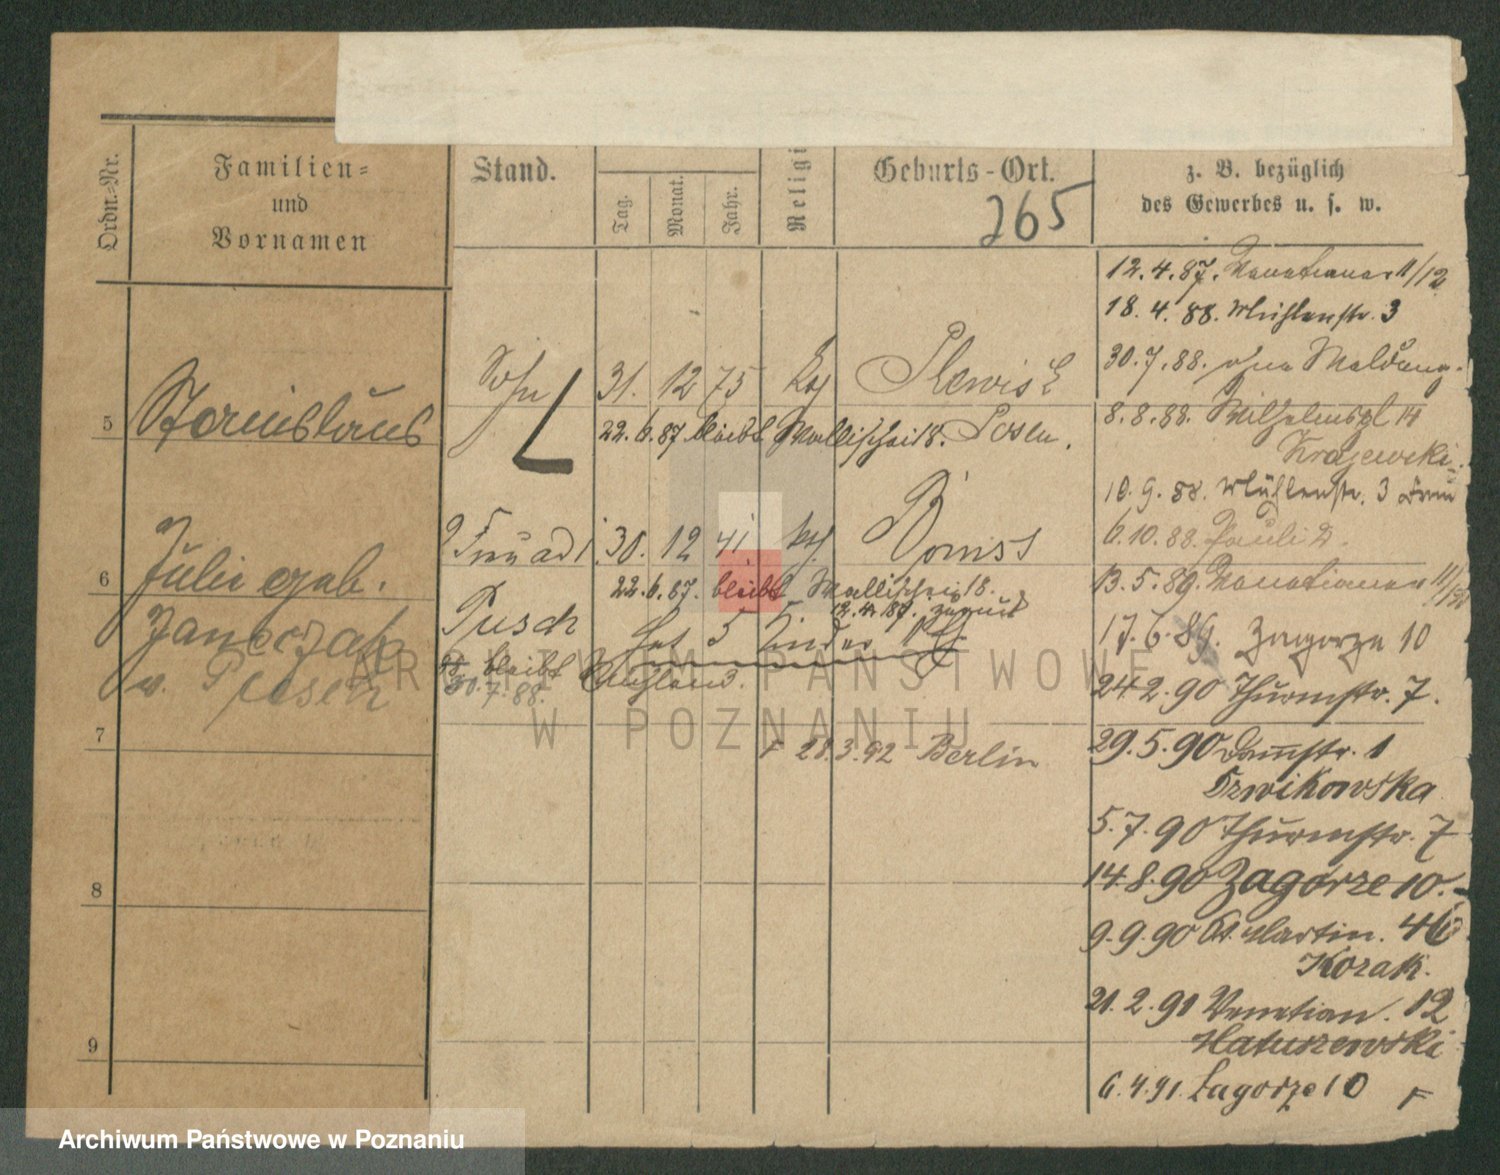 Ordn.-Nr.
Familien-
und
Vornamen
Stand.
Tag.
Monat.
Jahr.
Religi
Geburts-Ort.
265
z. B. bezüglich
des Gewerbes u. s. w.
12.4.87. Venetianer 11/12
18.4.88. Mühlenstr. 3
30.7.88. ohne Meldung.
8.8.88. Wilhelmspl 14
Krajewski.
10.9.88. Mühlenstr. 3
6.10.88. Pauli 2.
13.5.89. Venetianer 11/12
17.6.89. Zagorze 10
24.2.90 Thurmstr. 7.
29.5.90 Dammstr. 1
5.7.90 Thurmstr. 7
14.8.90 Zagorze 10.
9.9.90 St Martin. 46
Kozak.
21.2.91 Venetian. 12
Matuszewski
6.4.91. Zagorze 10 F
5 Stanislaus Sohn 31. 12 75 kath
22.6.87 bleibt Wallischei 18. Posen.
6 Julie geb. 30. 12 41. kath
22.6.87. bleibt Wallischei 18.
12.4.87. zurück
Janoczak Pusch hat 5 Kinder
v. Plesch bleibt Rußland.
30.7.88.
7
F 28.3.92 Berlin
8
9
ARCHIWUM PAŃSTWOWE
W POZNANIU
Archiwum Państwowe w Poznaniu